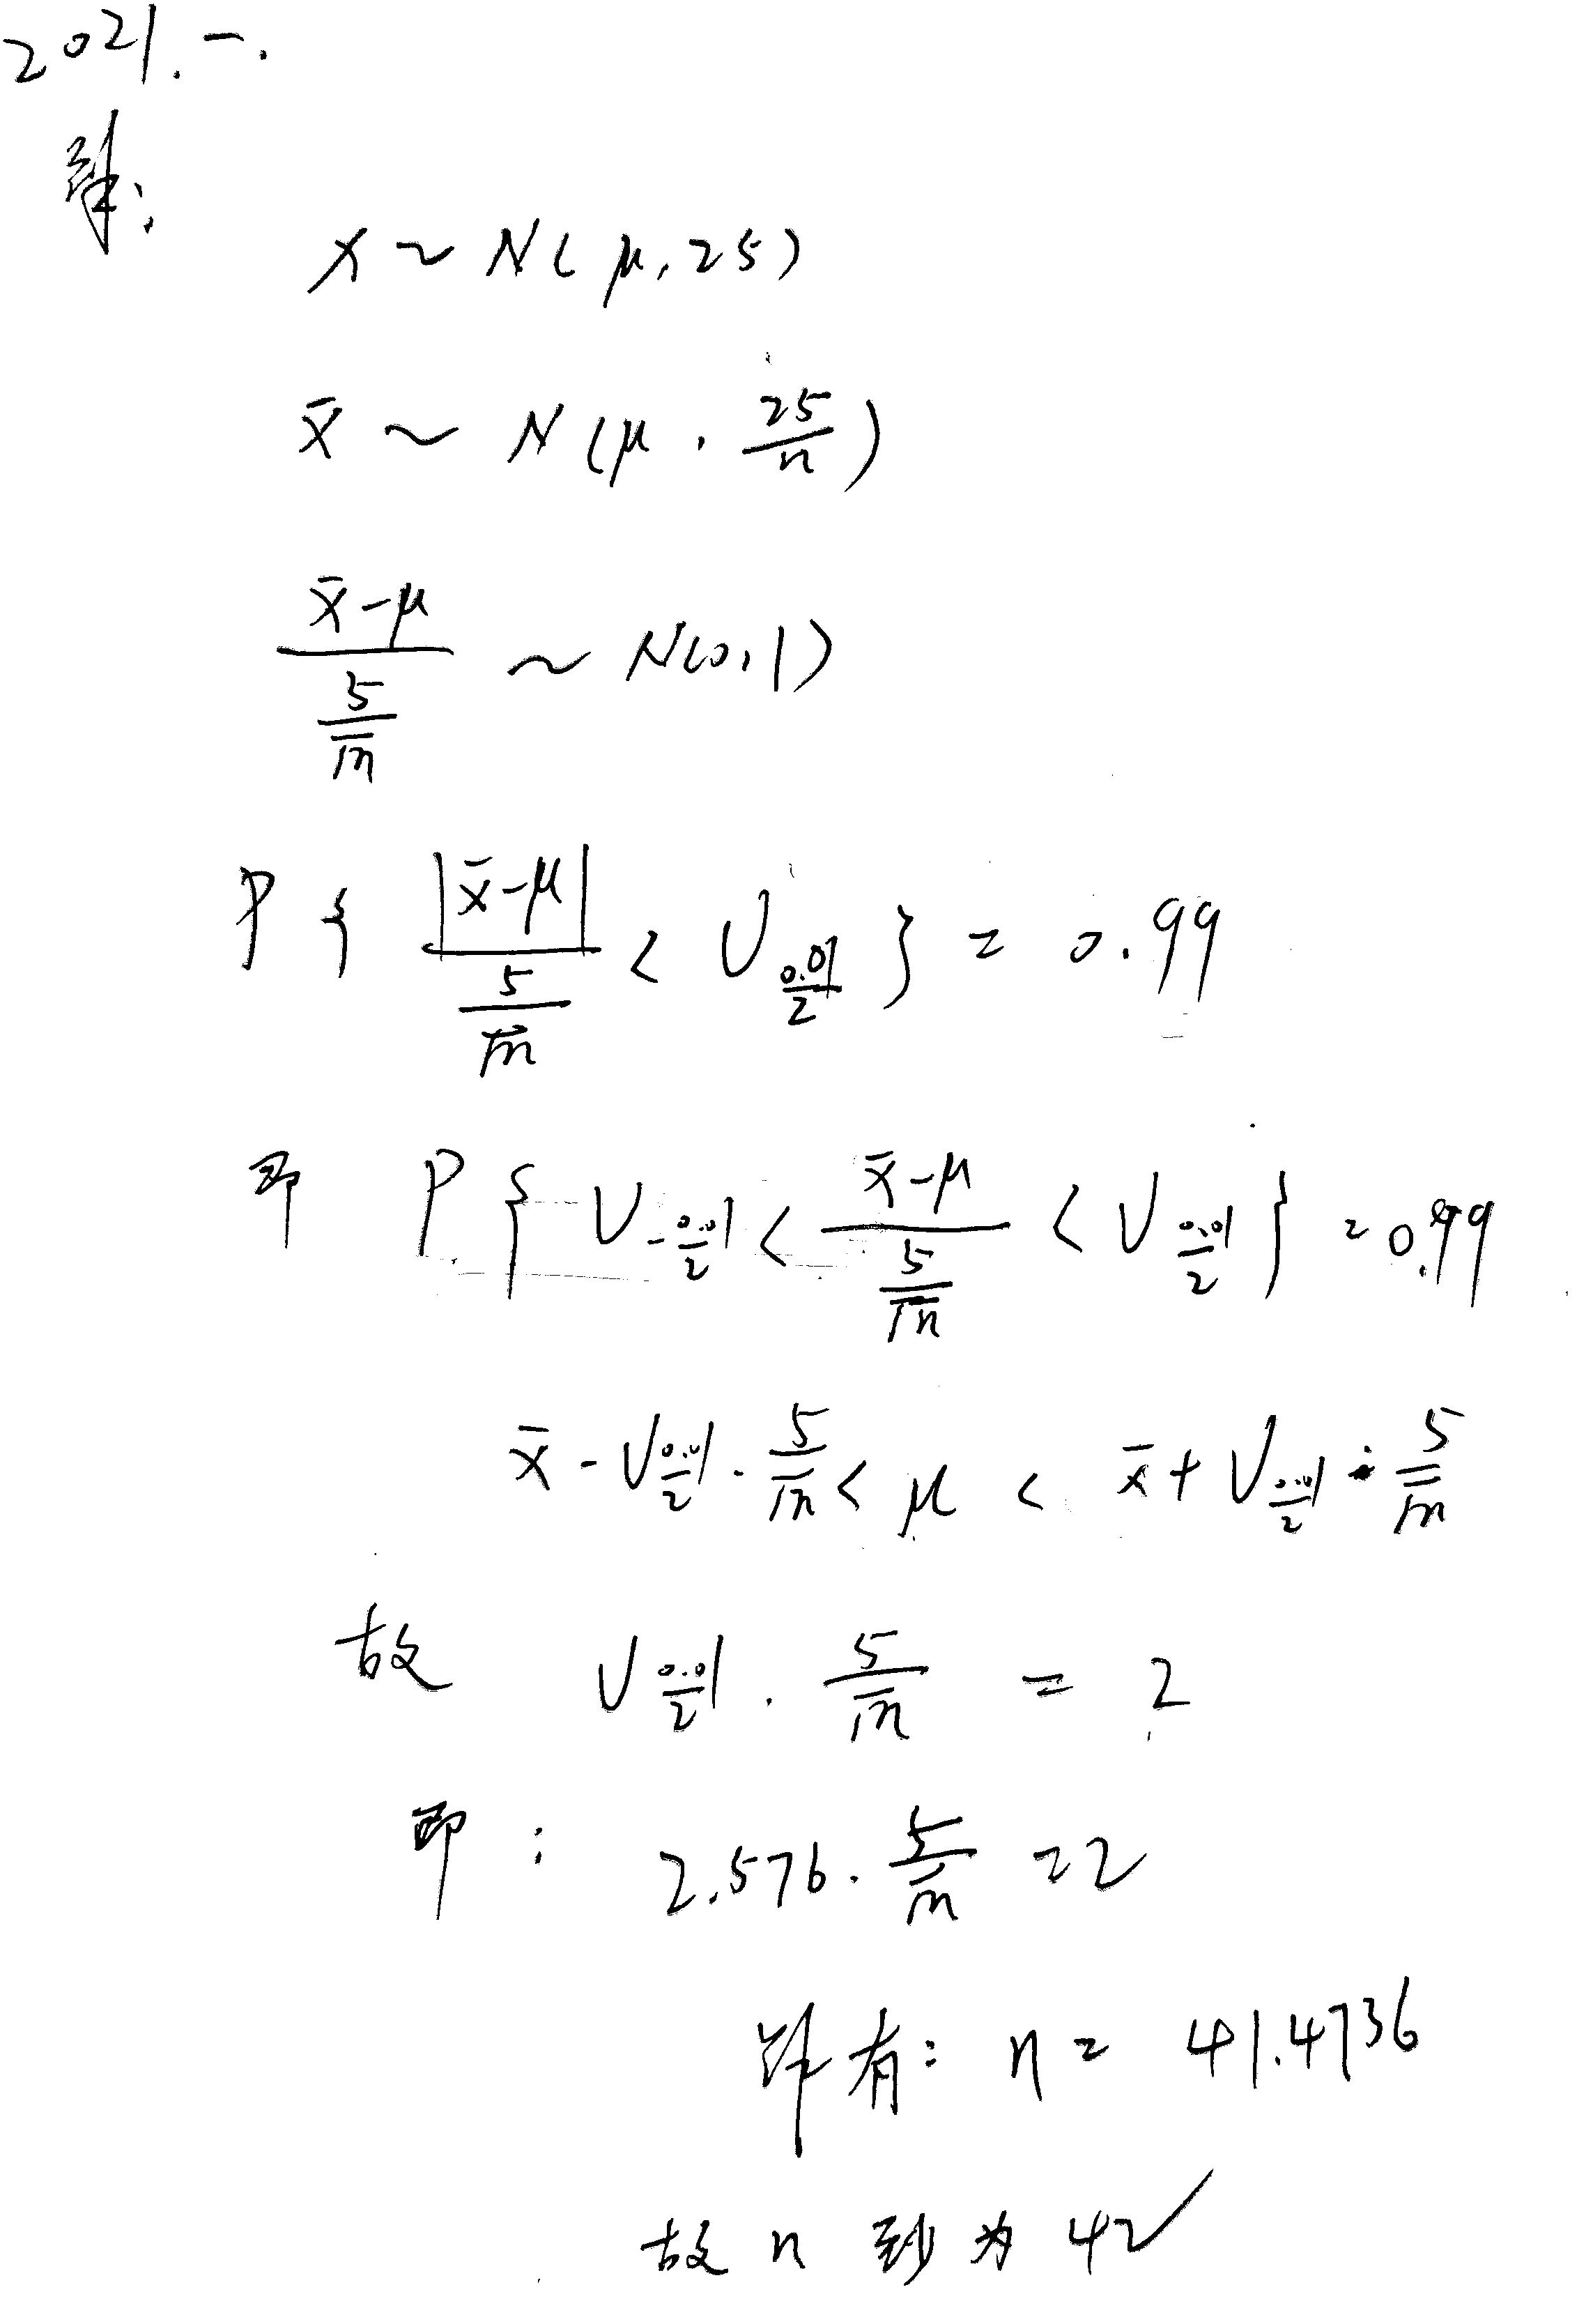 2021.一.
解:
X ~ N(μ, 25)
x̄ ~ N(μ, 25/n)
(x̄-μ)/(5/√n) ~ N(0,1)
P{ |x̄-μ|/(5/√n) < U_{0.01/2} } = 0.99
即 P{ U_{-0.01/2} < (x̄-μ)/(5/√n) < U_{0.01/2} } = 0.99
x̄ - U_{0.01/2} · 5/√n < μ < x̄ + U_{0.01/2} · 5/√n
故 U_{0.01/2} · 5/√n = 2
即: 2.576 · 5/√n = 2
解有: n = 41.4736
故 n 至少为 42